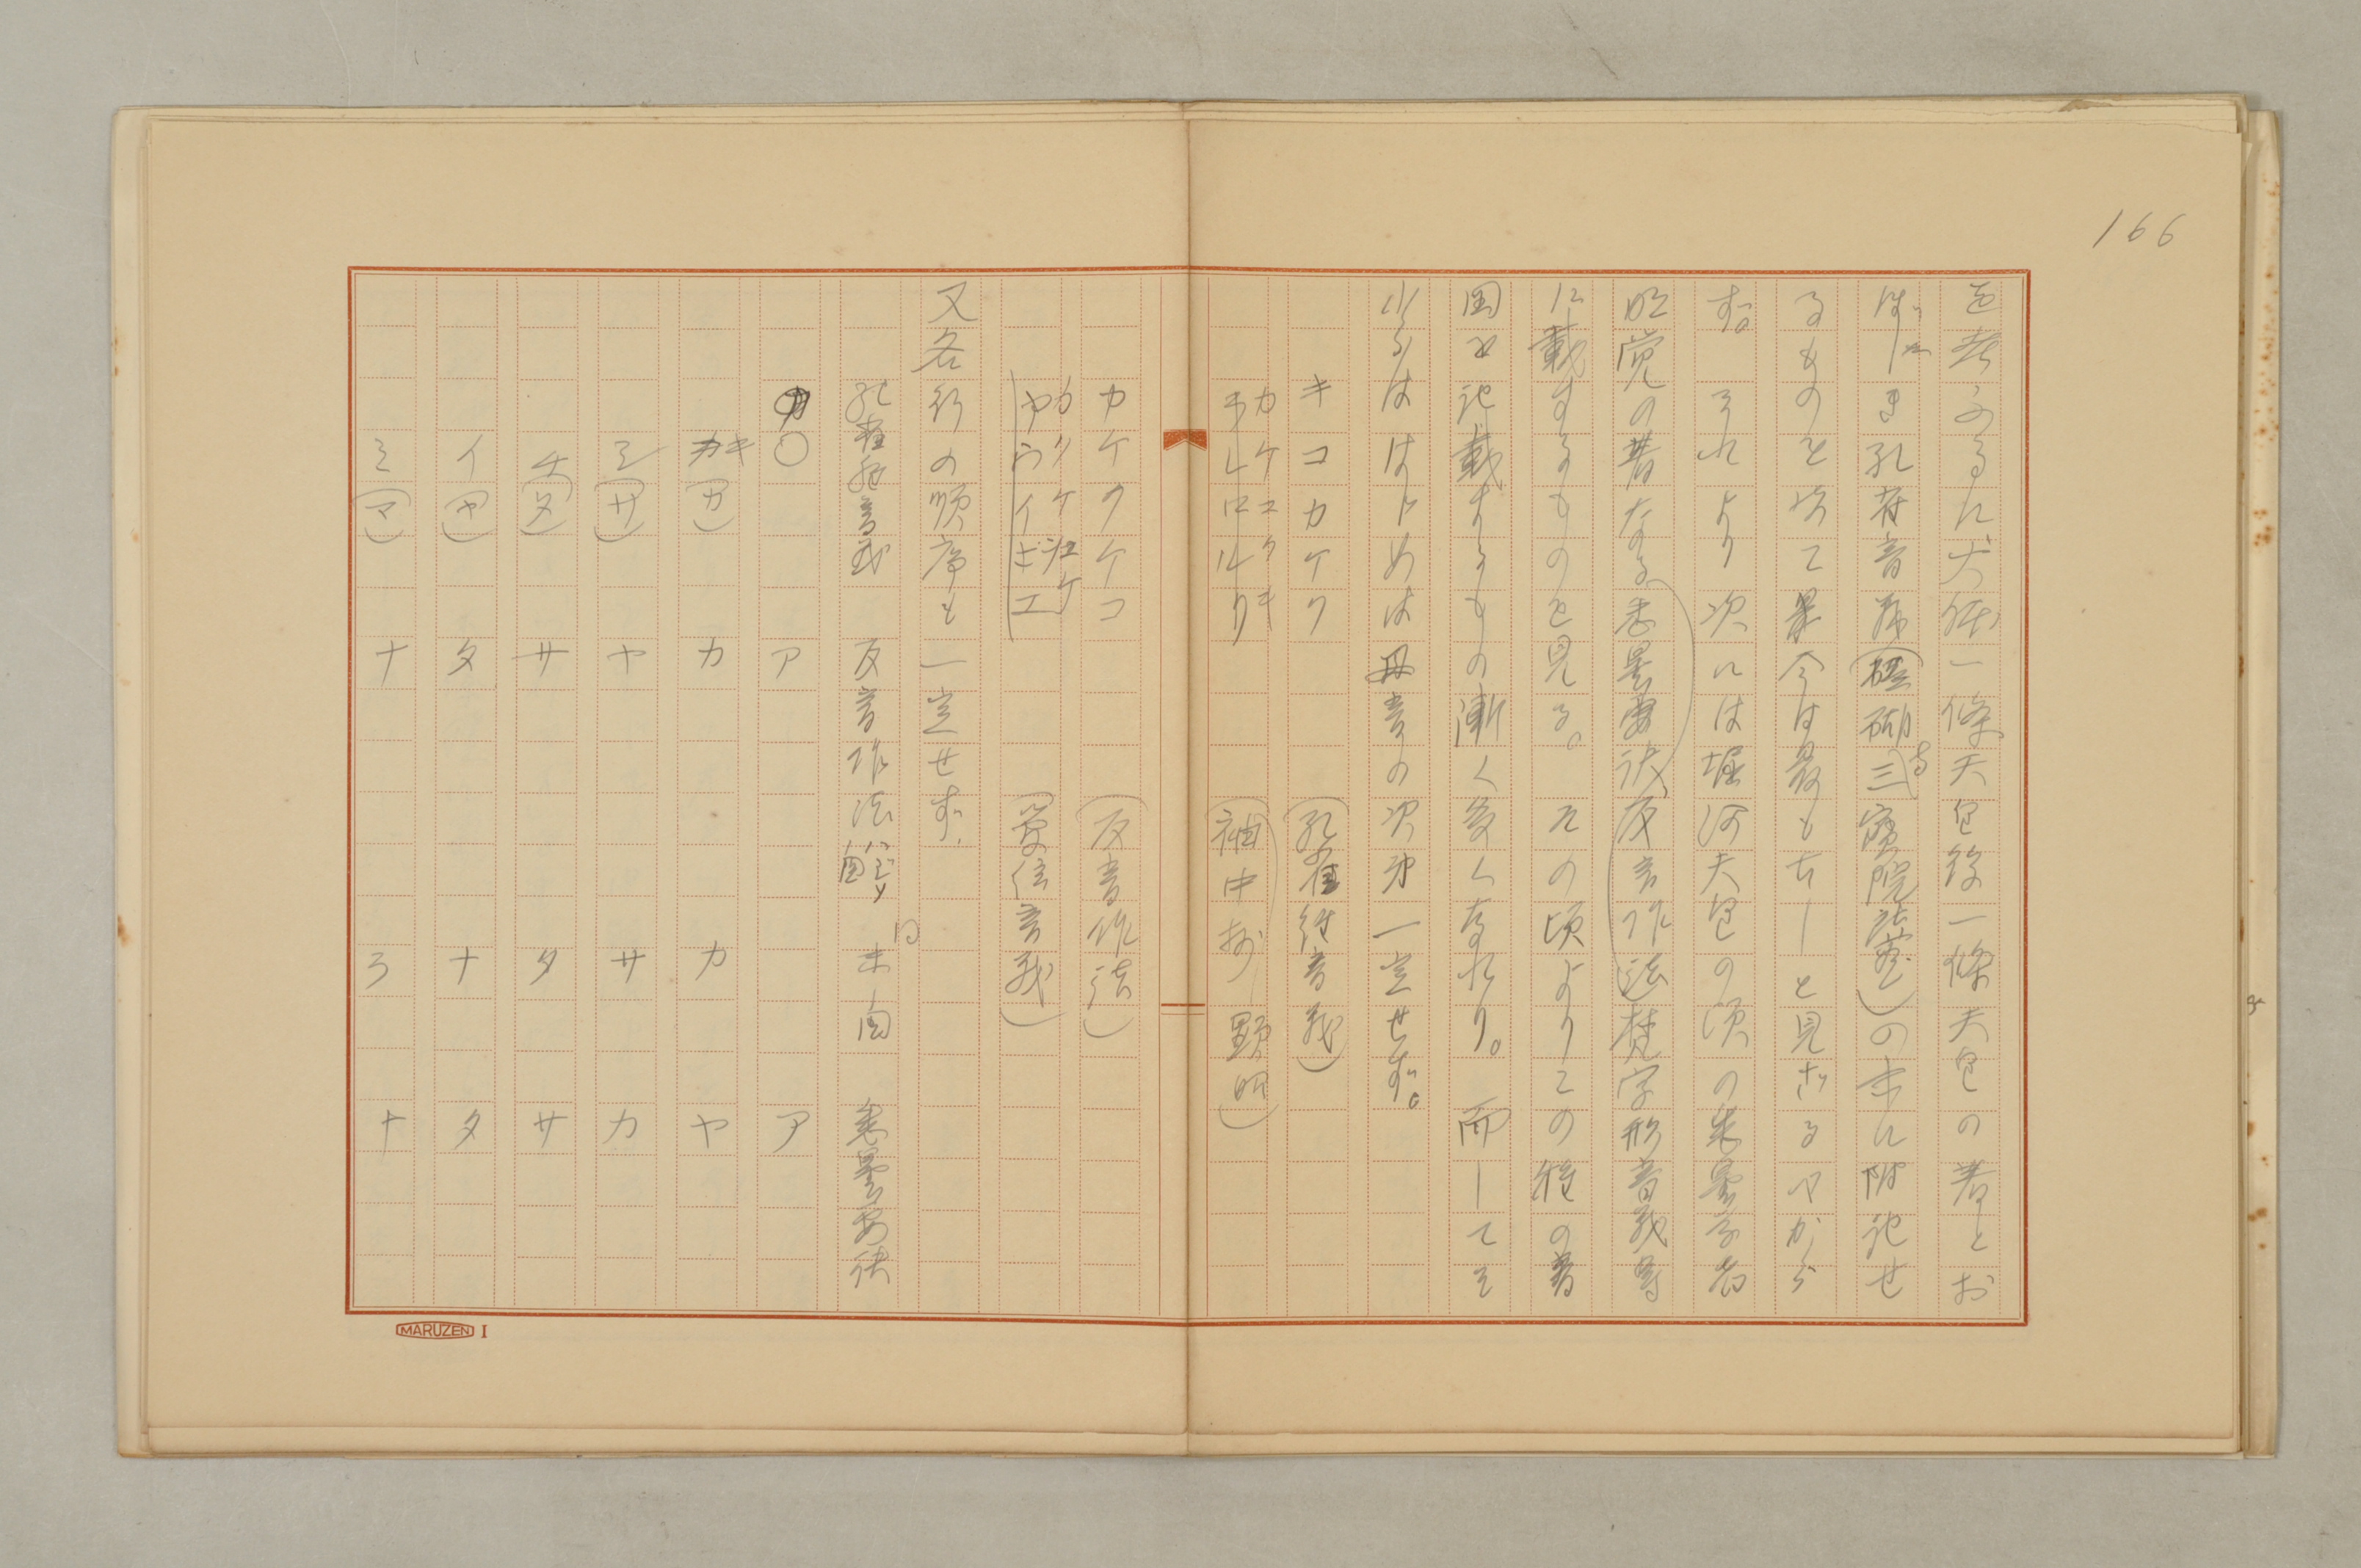 166
を考ふるに大体一條天皇後一條天皇の著とお
ぼしき孔雀音義(醍醐三寳院藏)の末に附記せ
るものを以て最も古しと見ざるべから
ず それより次には堀河天皇の頃の悉曇学者
明覚の著なる悉曇要訣反音作法梵字形音義等
に載するものを見る。その頃よりこの種の著
図を記載するもの漸く多くなれり。而してそ
はじめは母音の次第一定せず。
キコカケク (孔雀経音義)
カケコクキ
ラレロルリ (袖中抄 顕昭)
カケクケコ (反音作法)
カクケ
ヤウイ
エ
又各行の順序も一定せず.
孔雀経音義 反音作法 同末図 悉曇要訣
○ ア ア
キ(カ) カ カ ヤ
シ(サ) ヤ サ カ
チ(タ) サ タ サ
イ(ヤ) タ ナ タ
ミ(マ) ナ ラ ナ
MARUZEN I